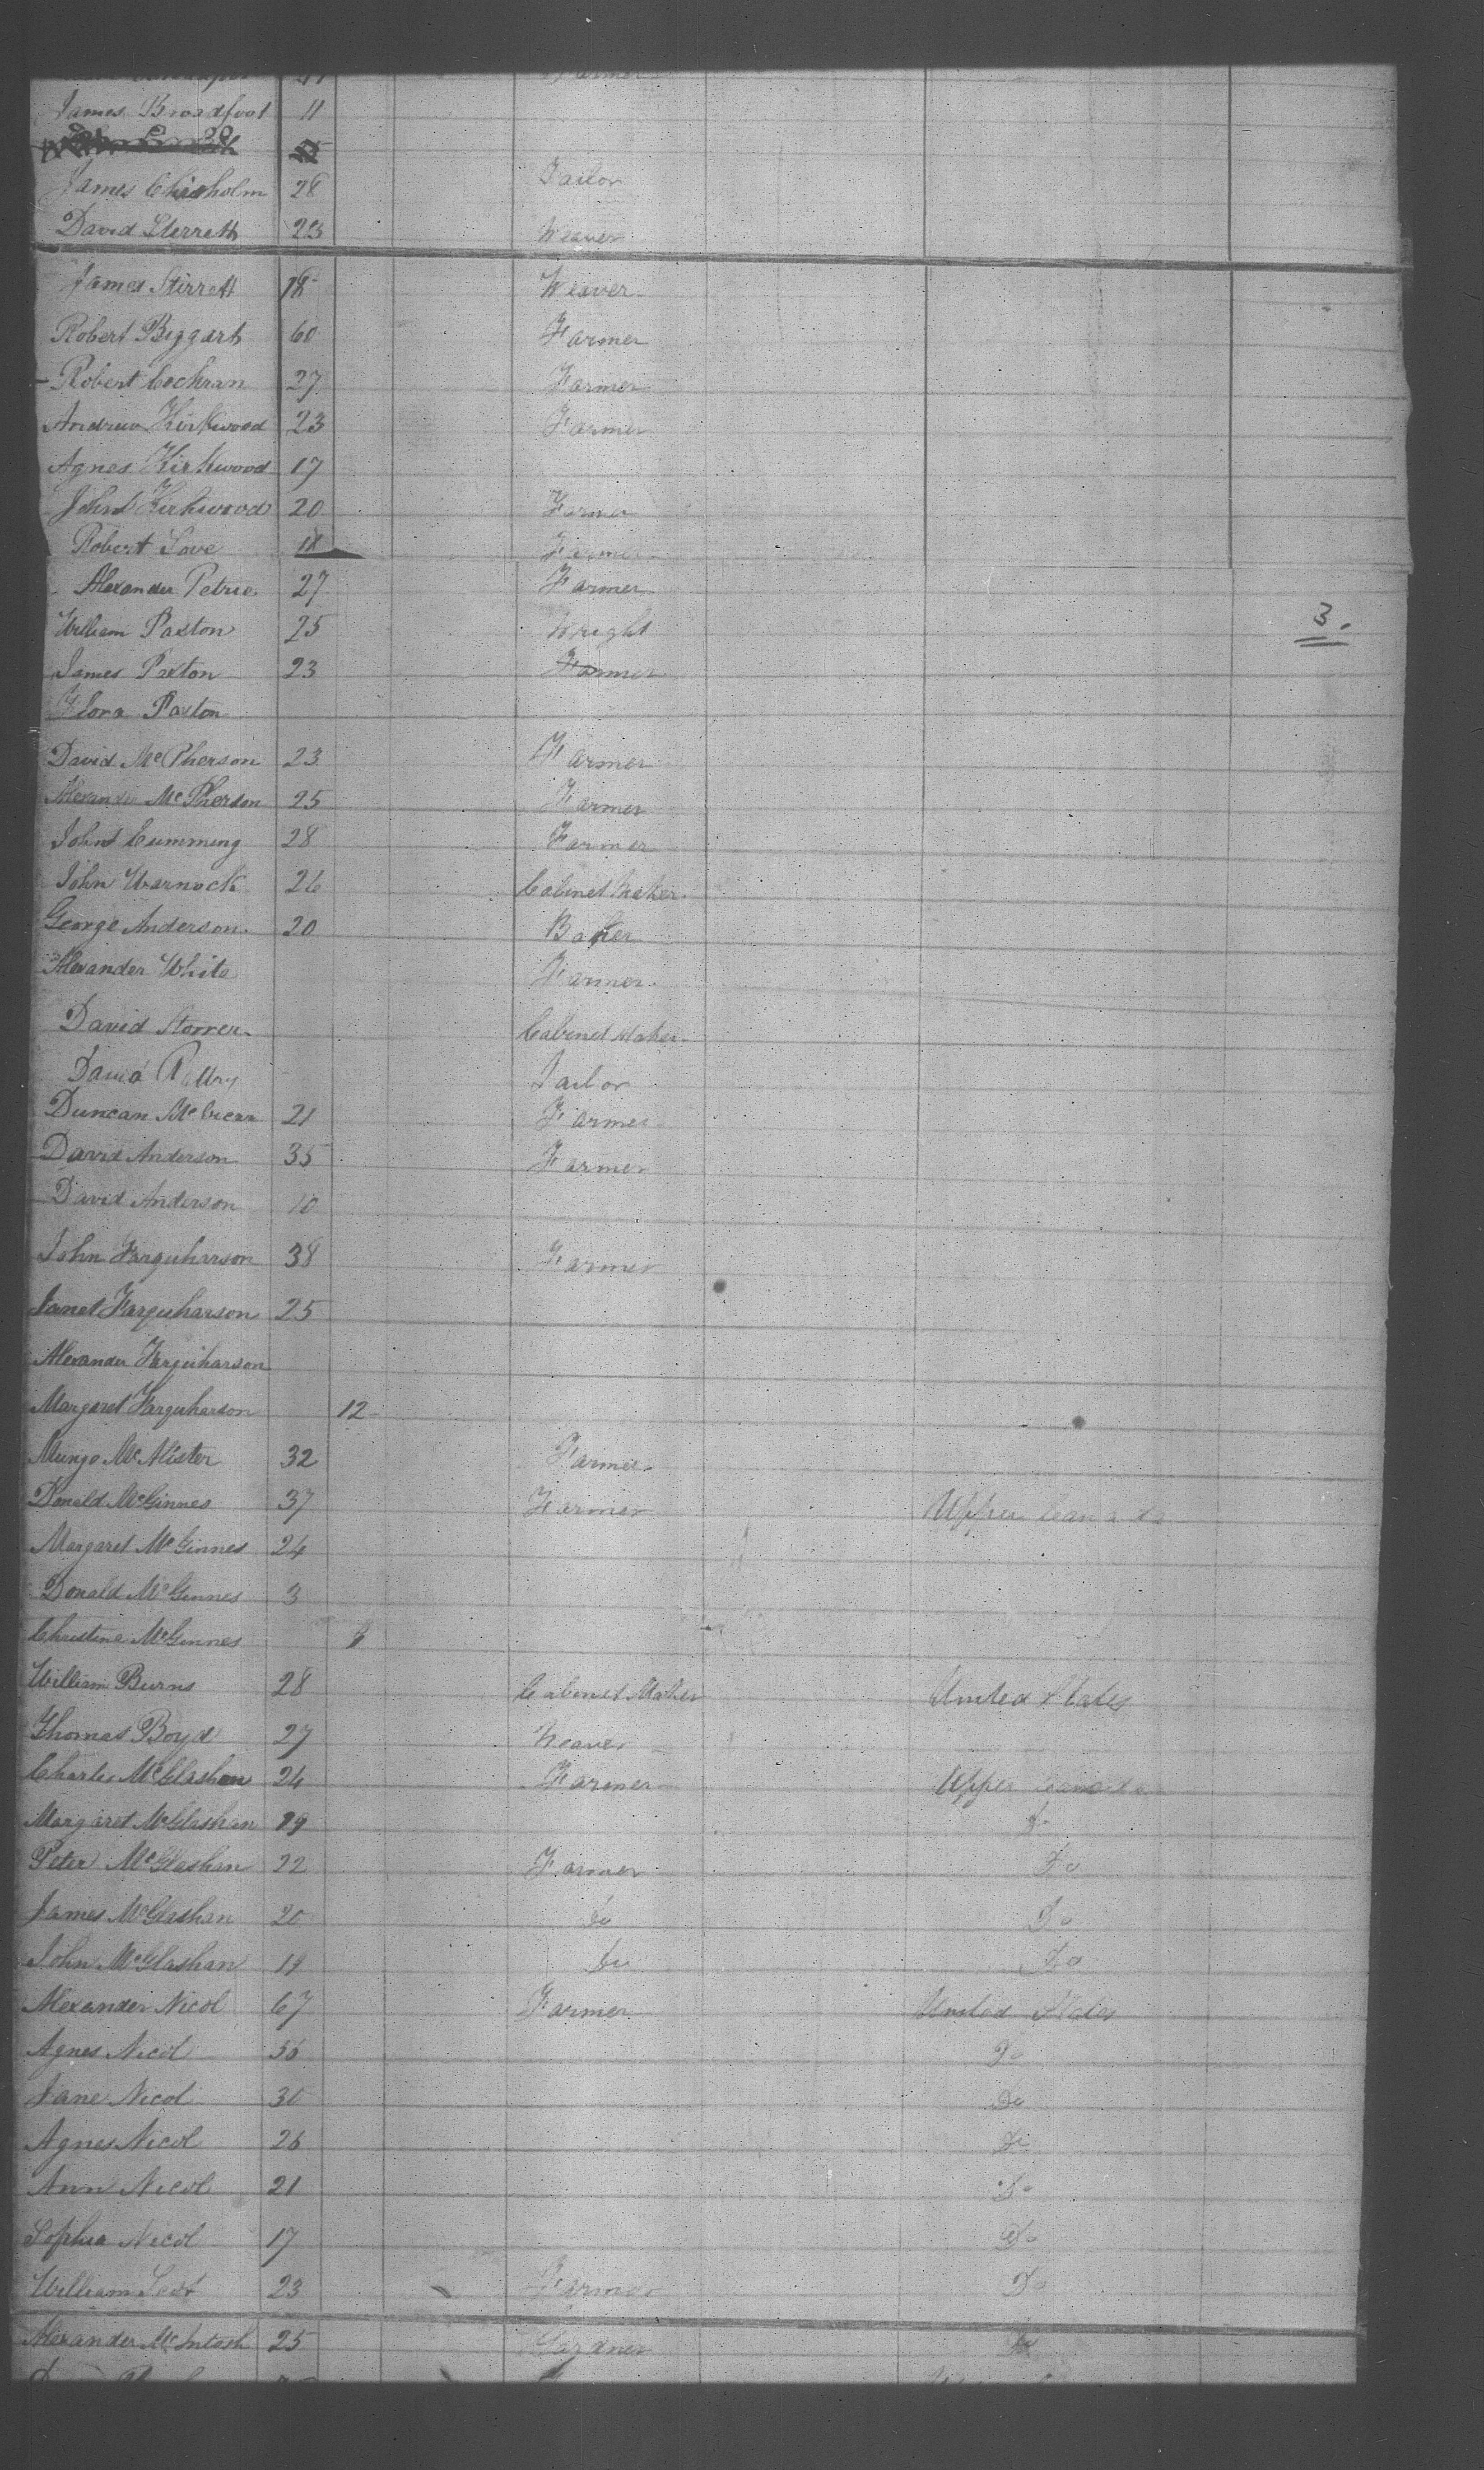 James Broadfoot 11
James Chisholm 28 Tailor
David Sterrett 23 Weaver
James Stirrett 18 Weaver
Robert Biggart 60 Farmer
Robert Cochran 27 Farmer
Andrew Kirkwood 23 Farmer
Agnes Kirkwood 17
John Kirkwood 20 Farmer
Robert Love 18 Farmer
Alexander Petrie 27 Farmer
William Paxton 25 Wright 3.
James Paxton 23 Farmer
Flora Paxton
David McPherson 23 Farmer
Alexander McPherson 25 Farmer
John Cumming 28 Farmer
John Warnock 26 Cabinet Maker
George Anderson 20 Baker
Alexander White Farmer
David Storrer Cabinet Maker
David Tailor
Duncan 21 Farmer
David Anderson 35 Farmer
David Anderson 10
John Farquharson 38 Farmer
Janet Farquharson 25
Alexander Farquharson
Margaret Farquharson 12
Mungo McAlister 32 Farmer
Donald McGinnes 37 Farmer Upper Canada
Margaret McGinnes 24
Donald McGinnes 3
Christine McGinnes
William Burns 28 Cabinet Maker United States
Thomas Boyd 27 Weaver
Charles McGlashan 24 Farmer Upper Canada
Margaret McGlashan 29 Do
Peter McGlashan 22 Farmer Do
James McGlashan 20 do Do
John McGlashan 19 do Do
Alexander Nicol 67 Farmer United States
Agnes Nicol 56 Do
Jane Nicol 30 Do
Agnes Nicol 26 Do
Ann Nicol 21 Do
Sophia Nicol 17 Do
William 23 Farmer Do
Alexander McIntosh 25 Gardner Do